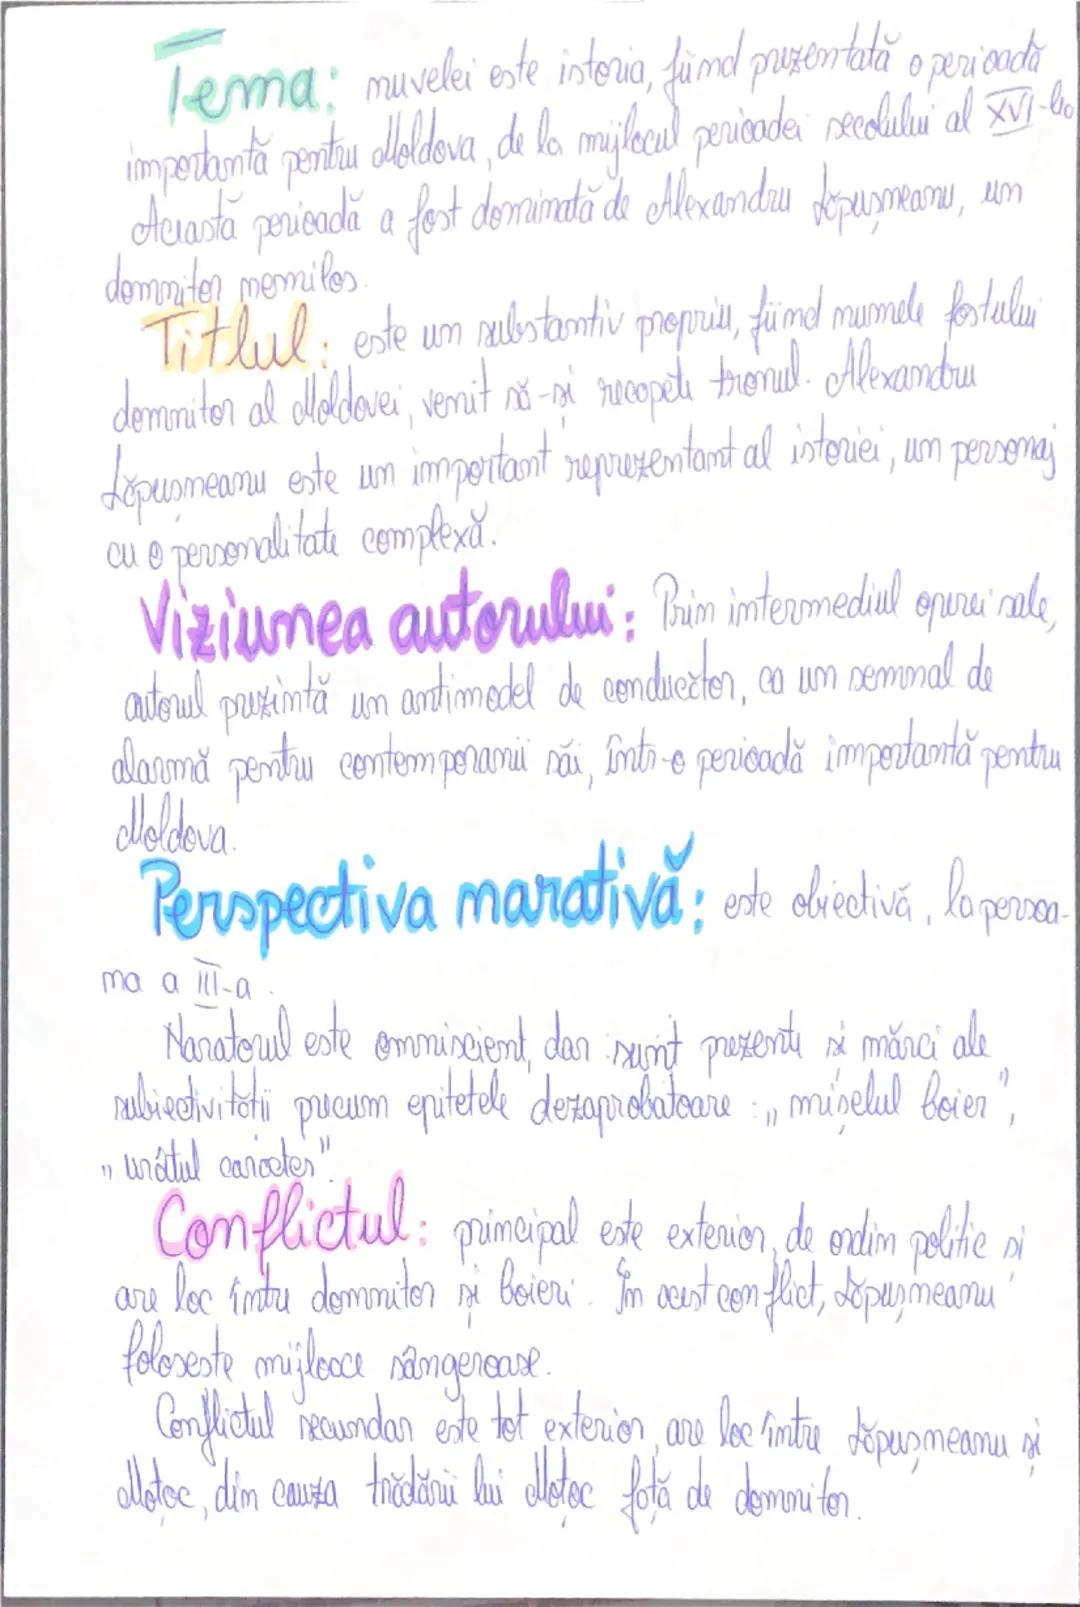 Tema: nuvelei este istoria, fiind prezentată o perioadă
importantă pentru Moldova, de la mijlocul perioadei secolului al XVI-lea
Această perioadă a fost dominată de Alexandru Lăpușneanu, un
domnitor nemilos.
Titlul: este un substantiv propriu, fiind numele fostului
domnitor al Moldovei, venit să-și recapete tronul. Alexandru
Lăpușneanu este un important reprezentant al istoriei, un personaj
cu o personalitate complexă.
Viziunea autorului: Prin intermediul operei sale,
autorul prezintă un antimodel de conducător, ca un semnal de
alarmă pentru contemporanii săi, într-o perioadă importantă pentru
Moldova.
Perspectiva narativă: este obiectivă, la persoa-
na a III-a.
Naratorul este omniscient, dar sunt prezente și mărci ale
subiectivității precum epitetele dezaprobatoare: „mișelul boier",
„urâtul caracter".
Conflictul: principal este exterior, de ordin politic și
are loc între domnitor și boieri. În acest conflict, Lăpușneanu
folosește mijloace sângeroase.
Conflictul secundar este tot exterior, are loc între Lăpușneanu și
Moțoc, din cauza trădării lui Moțoc față de domnitor.